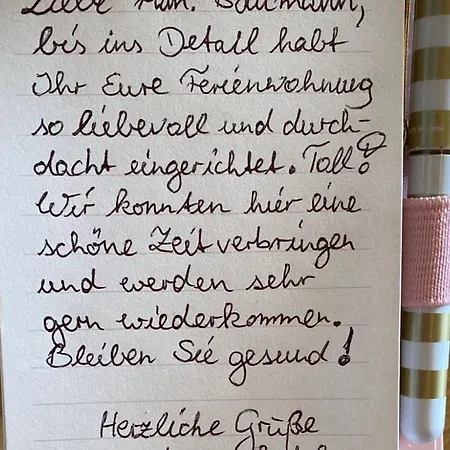 Liebe Fam. Baumann,
bis ins Detail habt
Ihr Eure Ferienwohnung
so liebevoll und durch-
dacht eingerichtet. Toll!
Wir konnten hier eine
schöne Zeit verbringen
und werden sehr
gern wiederkommen.
Bleiben Sie gesund!
Herzliche Grüße